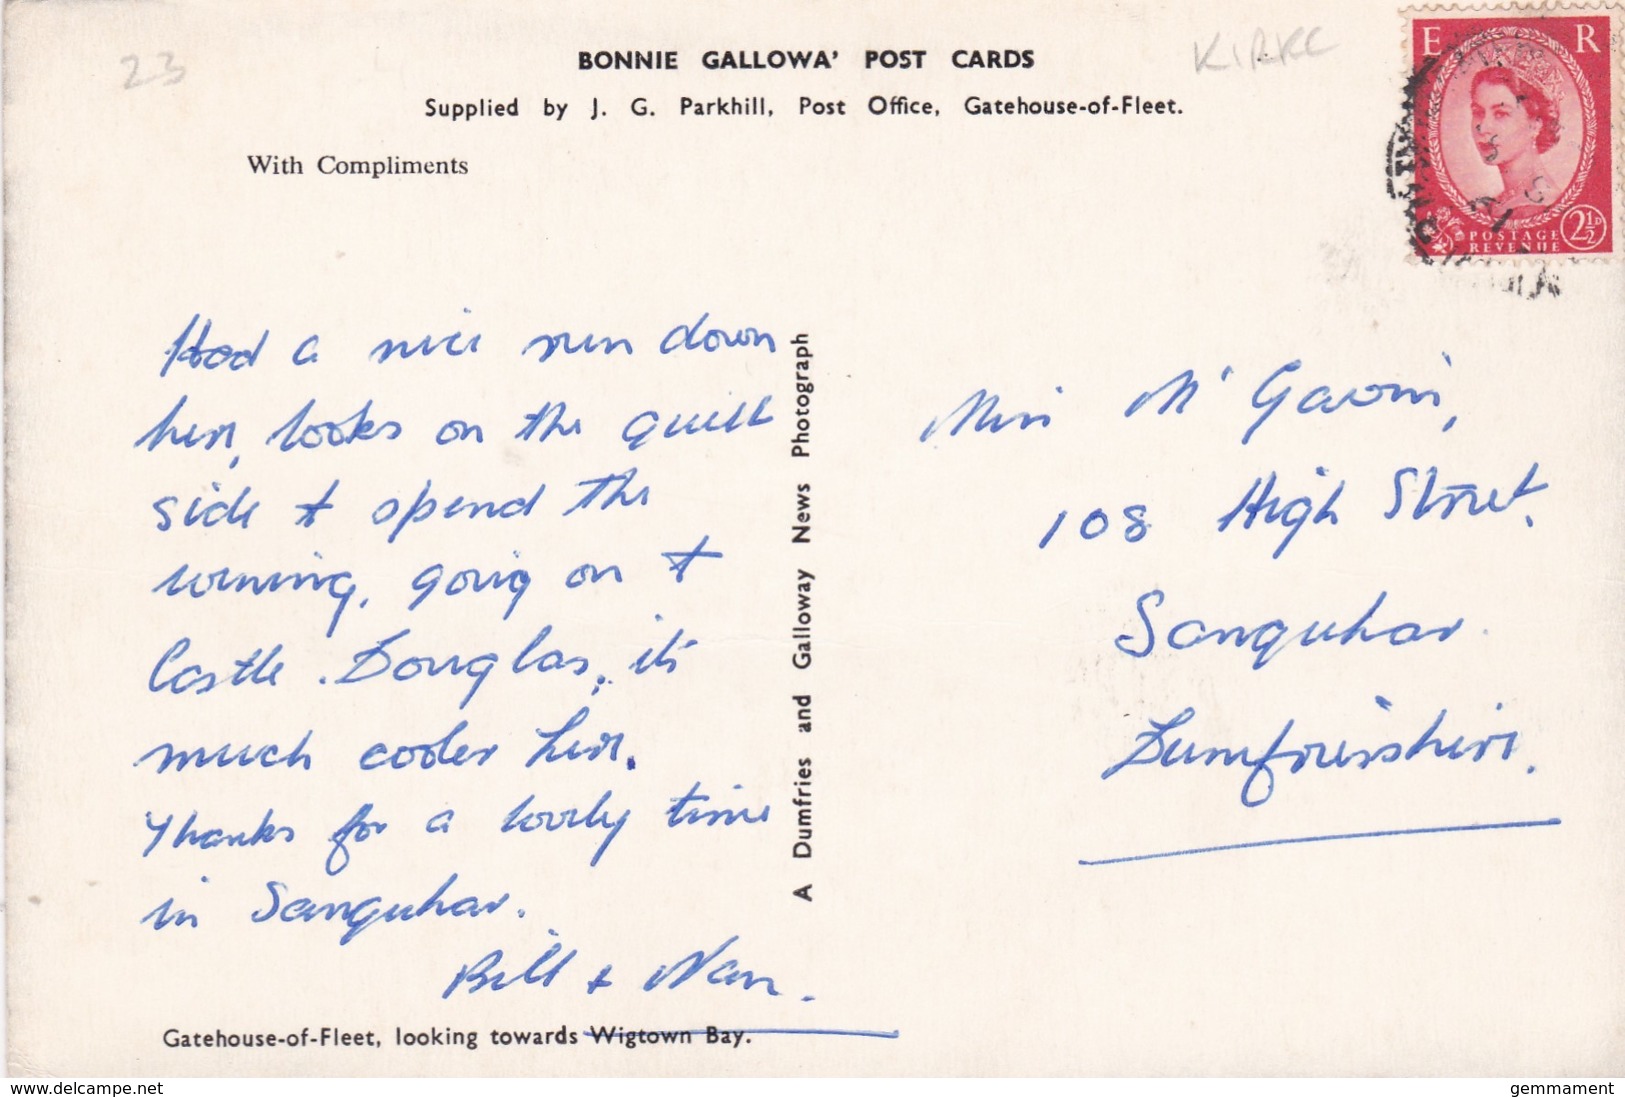 23
BONNIE GALLOWA' POST CARDS
KIRKC
Supplied by J. G. Parkhill, Post Office, Gatehouse-of-Fleet.
With Compliments
E R
POSTAGE
REVENUE
2½D
Had a nice run down
here, looks on the quiet
side &
spend the
evening, going on &
Castle Douglas, its
much cooler here.
Thanks for a lovely time
in Sanquhar.
Bill & Nan.
A Dumfries and Galloway News Photograph
Miss McGavin,
108 High Street.
Sanquhar.
Dumfriesshire.
Gatehouse-of-Fleet, looking towards Wigtown Bay.
www.delcampe.net
gemmament